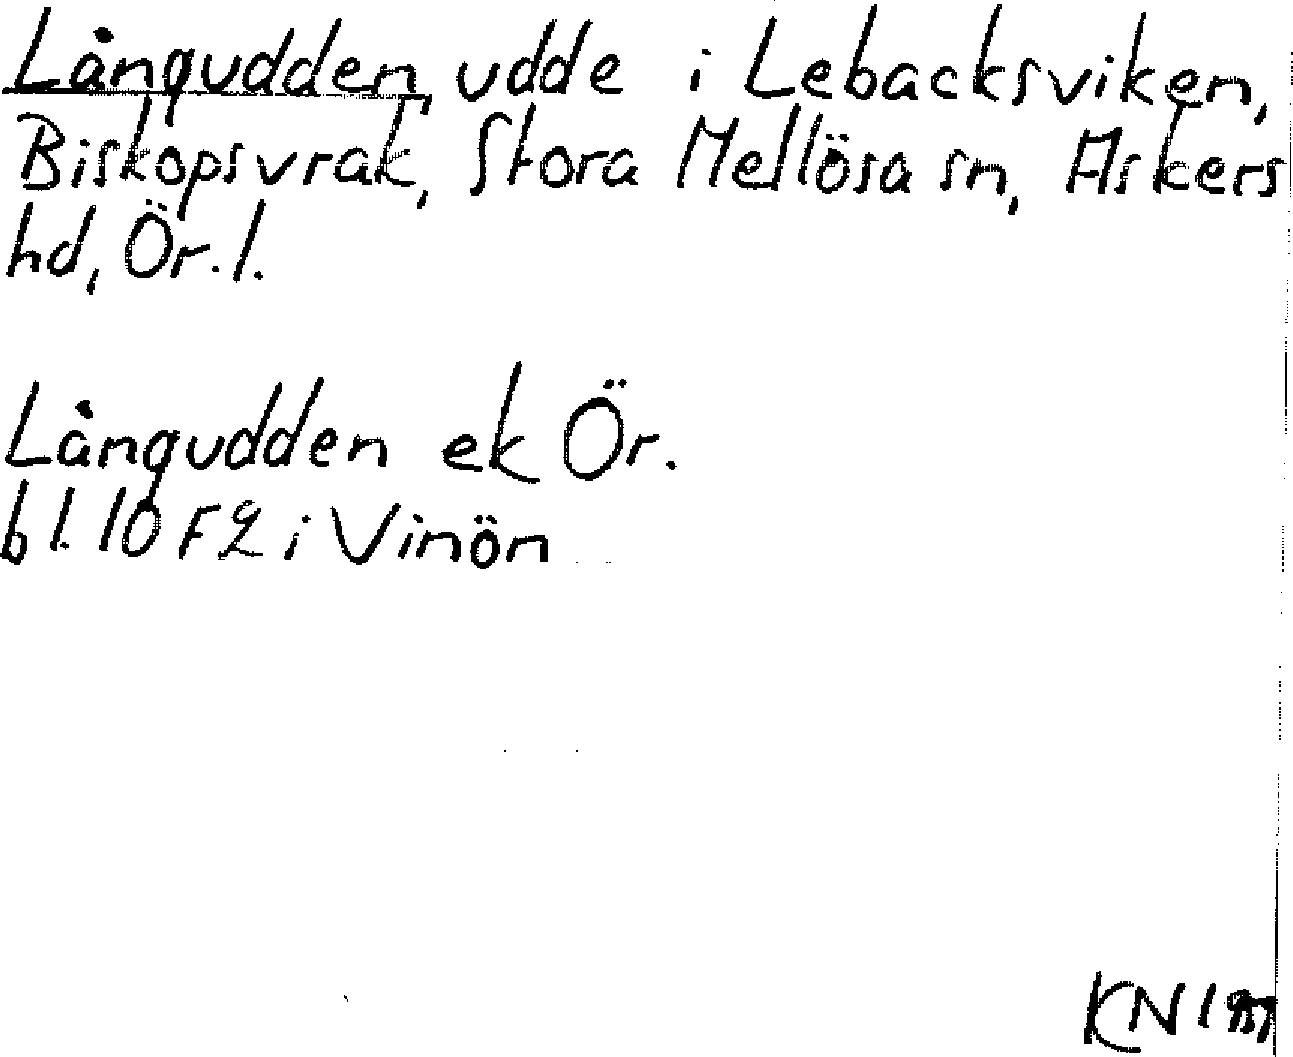 Långudden, udde i Lebacksviken,
Biskopsvrak, Stora Mellösa sn, Askers
hd, Ör. l.
Långudden ek Ör.
bl. 10 F2 i Vinön
KN